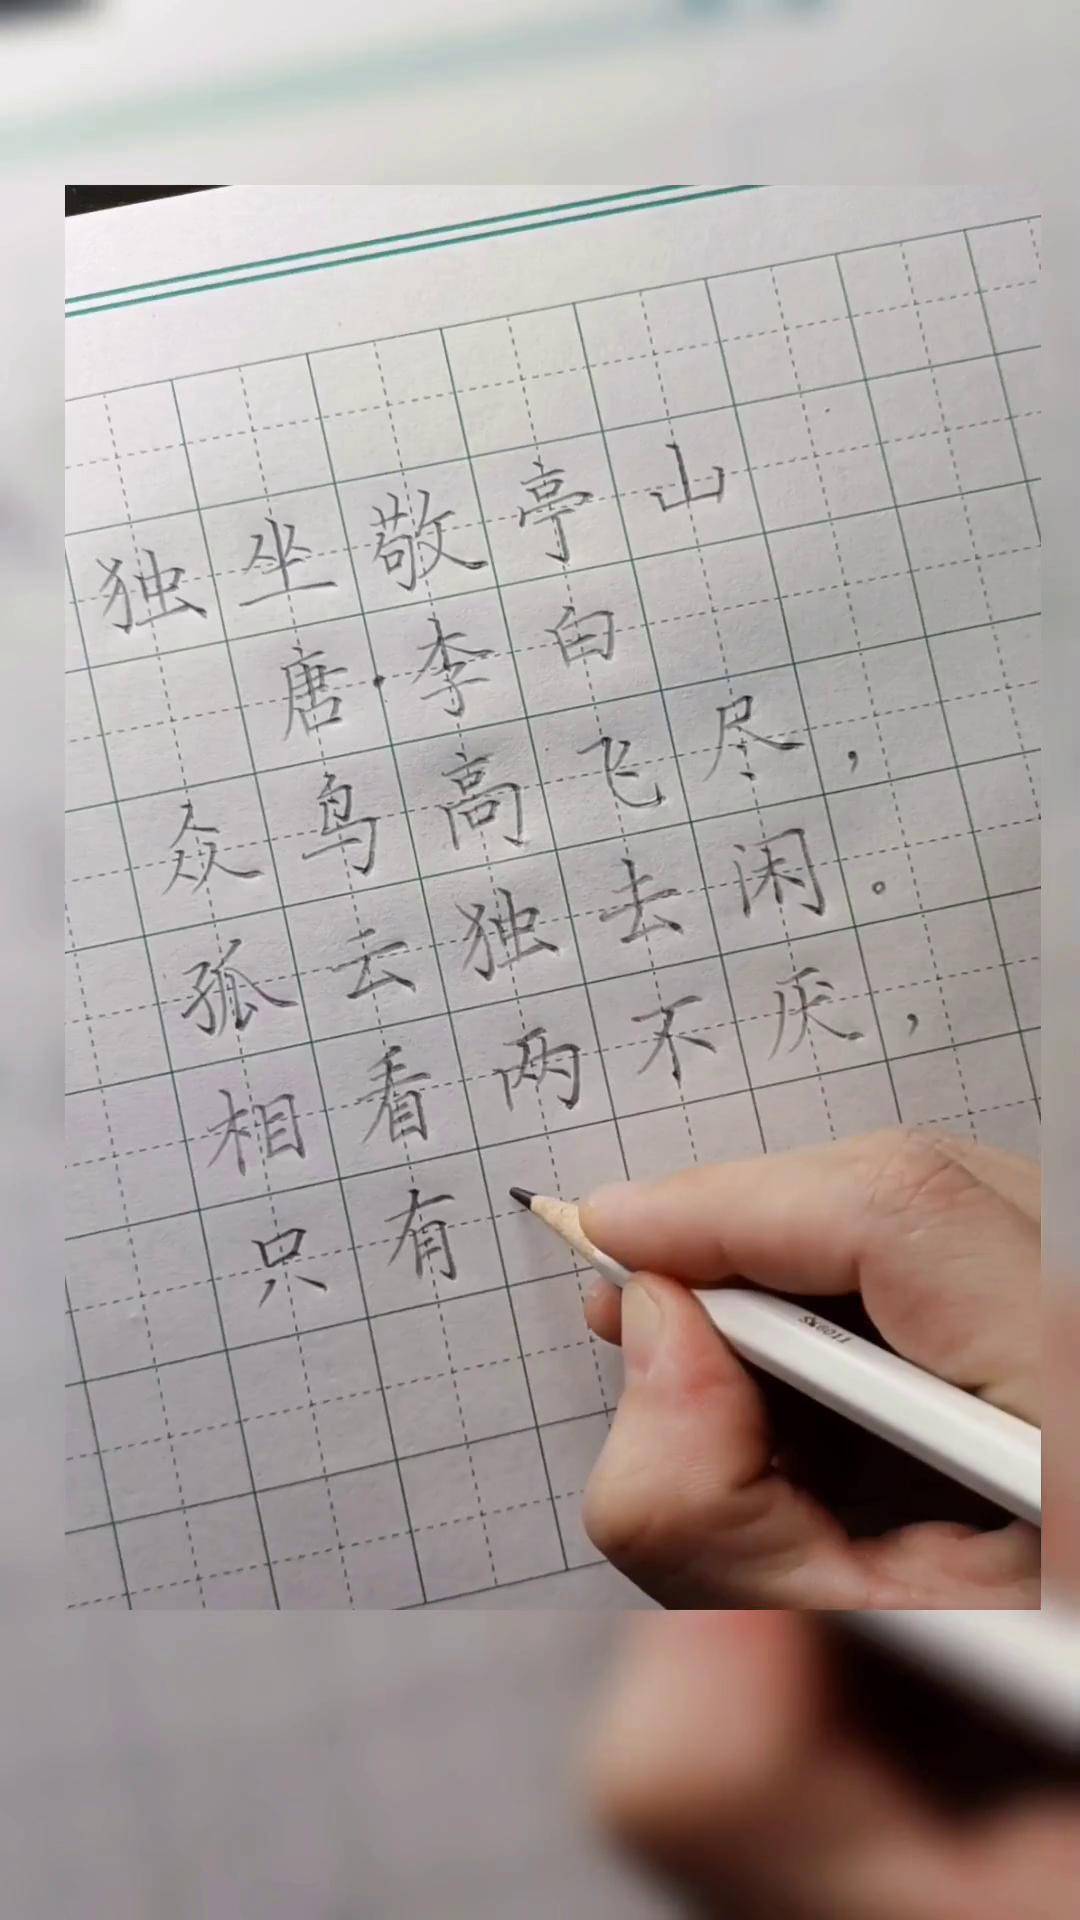 独坐敬亭山
唐·李白
众鸟高飞尽，
孤云独去闲。
相看两不厌，
只有